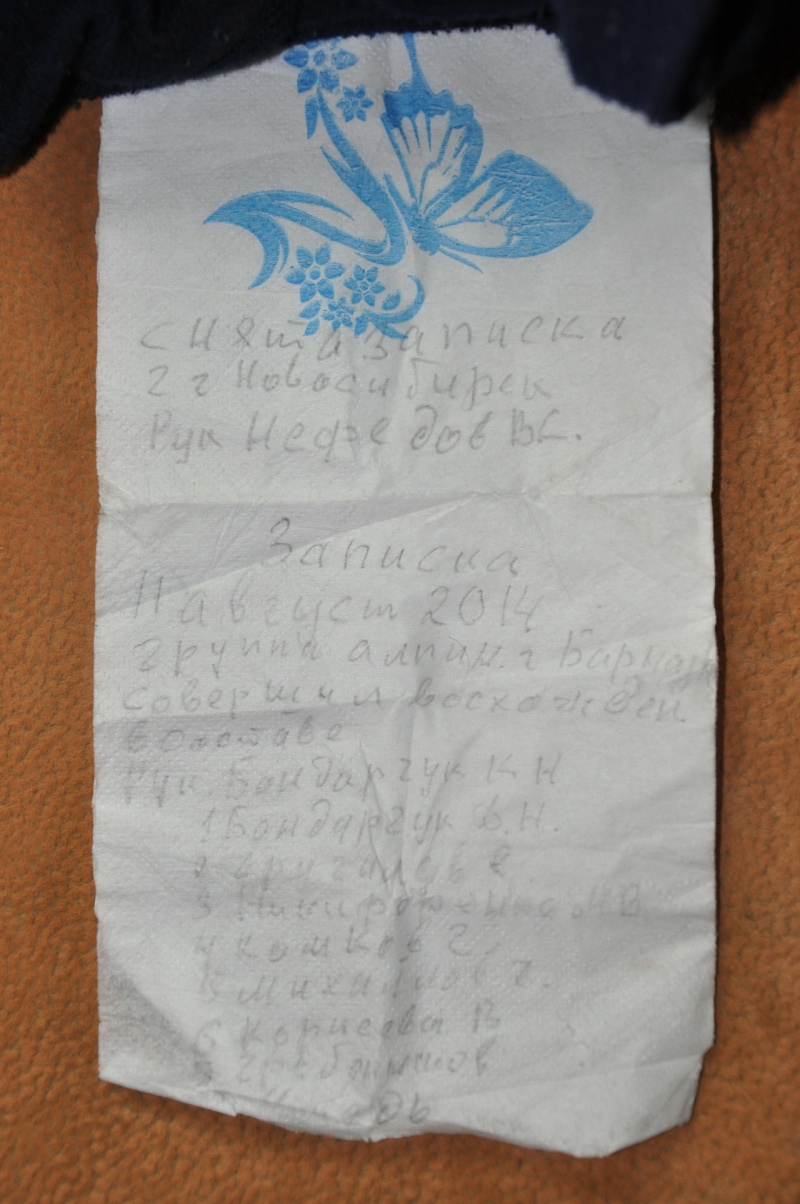 Снята записка
г г Новосибирск
Рук Нефедов ВГ.
Записка
11 август 2014
группа альпин. г Барнаул
совершил восхожден.
в составе
Рук. Бондарчук К Н
1 Бондарчук В.Н.
2
3 Никифоренко М В
4 Кошков Г.
5 Михайлов Г.
6 В
7 Гребенщиков